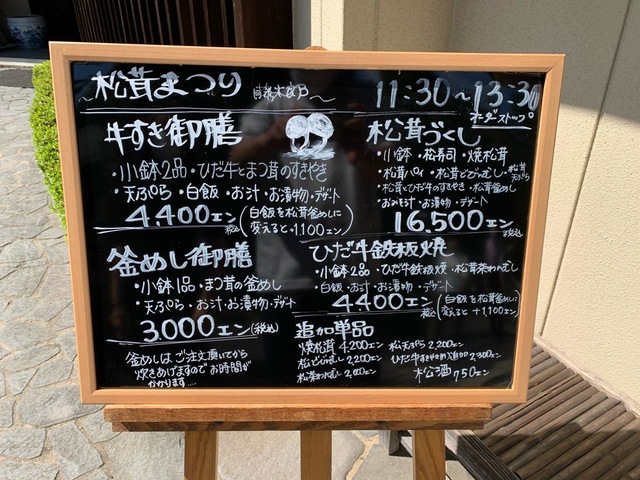 ~松茸まつり
11:30~13:30
オーダーストップ
牛すき御膳
・小鉢2品・ひだ牛とまつ茸のすきやき
・天ぷら・白飯・お汁・お漬物・デザート
4,400エン(税込)
(白飯を松茸釜めしに
変えると+1,100エン)
松茸づくし
・小鉢・松寿司・焼松茸
・松茸パイ・松茸どびんむし・松茸天ぷら
・松茸とひだ牛のすきやき・松茸釜めし
・おみそ汁・お漬物・デザート
16,500エン
税込
釜めし御膳
・小鉢1品・まつ茸の釜めし
・天ぷら・お汁・お漬物・デザート
3,000エン(税込)
釜めしは、ご注文頂いてから
炊きあげますので お時間が
かかります....
ひだ牛鉄板焼
・小鉢2品・ひだ牛鉄板焼・松茸茶わんむし
・白飯・お汁・お漬物・デザート
4,400エン(税込)
(白飯を松茸釜めしに
変えると+1,100エン)
追加単品
焼松茸 4,200エン
松どびんむし 2,200エン
松茶わんむし 2,000エン
松天ぷら 2,200エン
ひだ牛すきやき肉追加 2,300エン
松酒 750エン